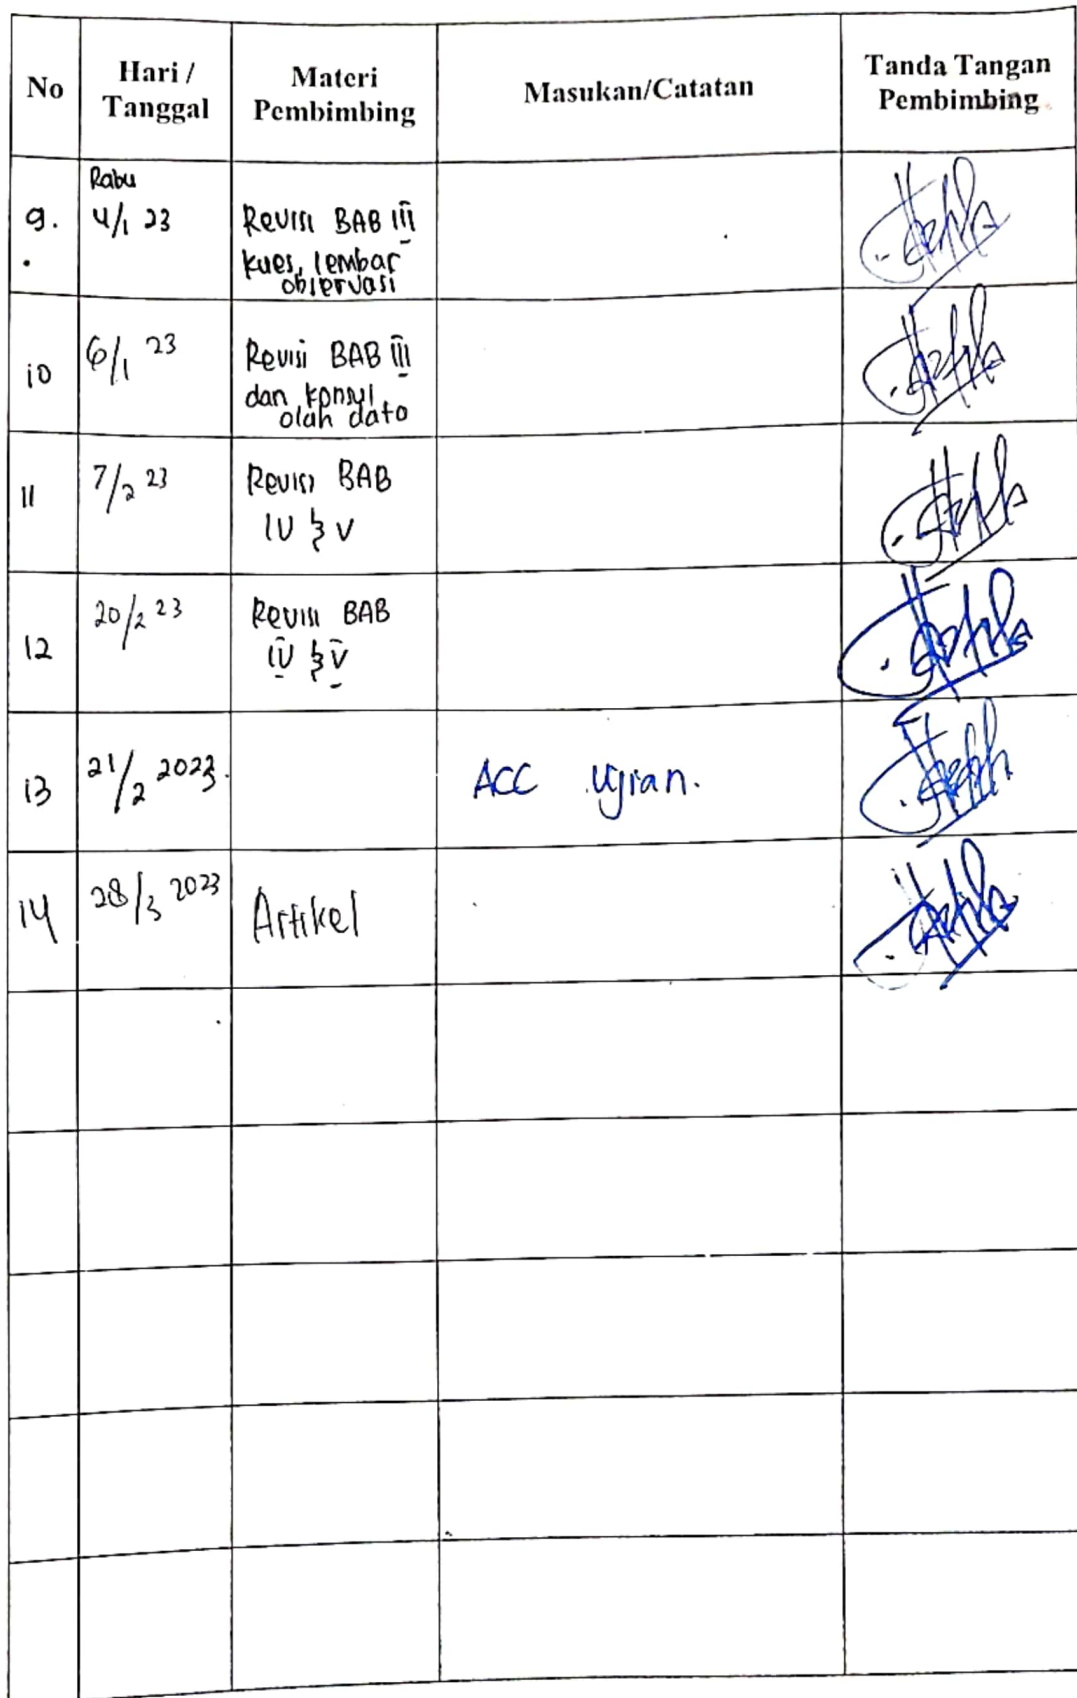 No
Hari /
Tanggal
Materi
Pembimbing
Masukan/Catatan
Tanda Tangan
Pembimbing
9.
Rabu
4/1 23
Revisi BAB III
kues, lembar
observasi
10
6/1 23
Revisi BAB III
dan konsul
olah data
11
7/2 23
Revisi BAB
IV & V
12
20/2 23
Revisi BAB
IV & V
13
21/2 2023.
ACC Ujian.
14
28/3 2023
Artikel